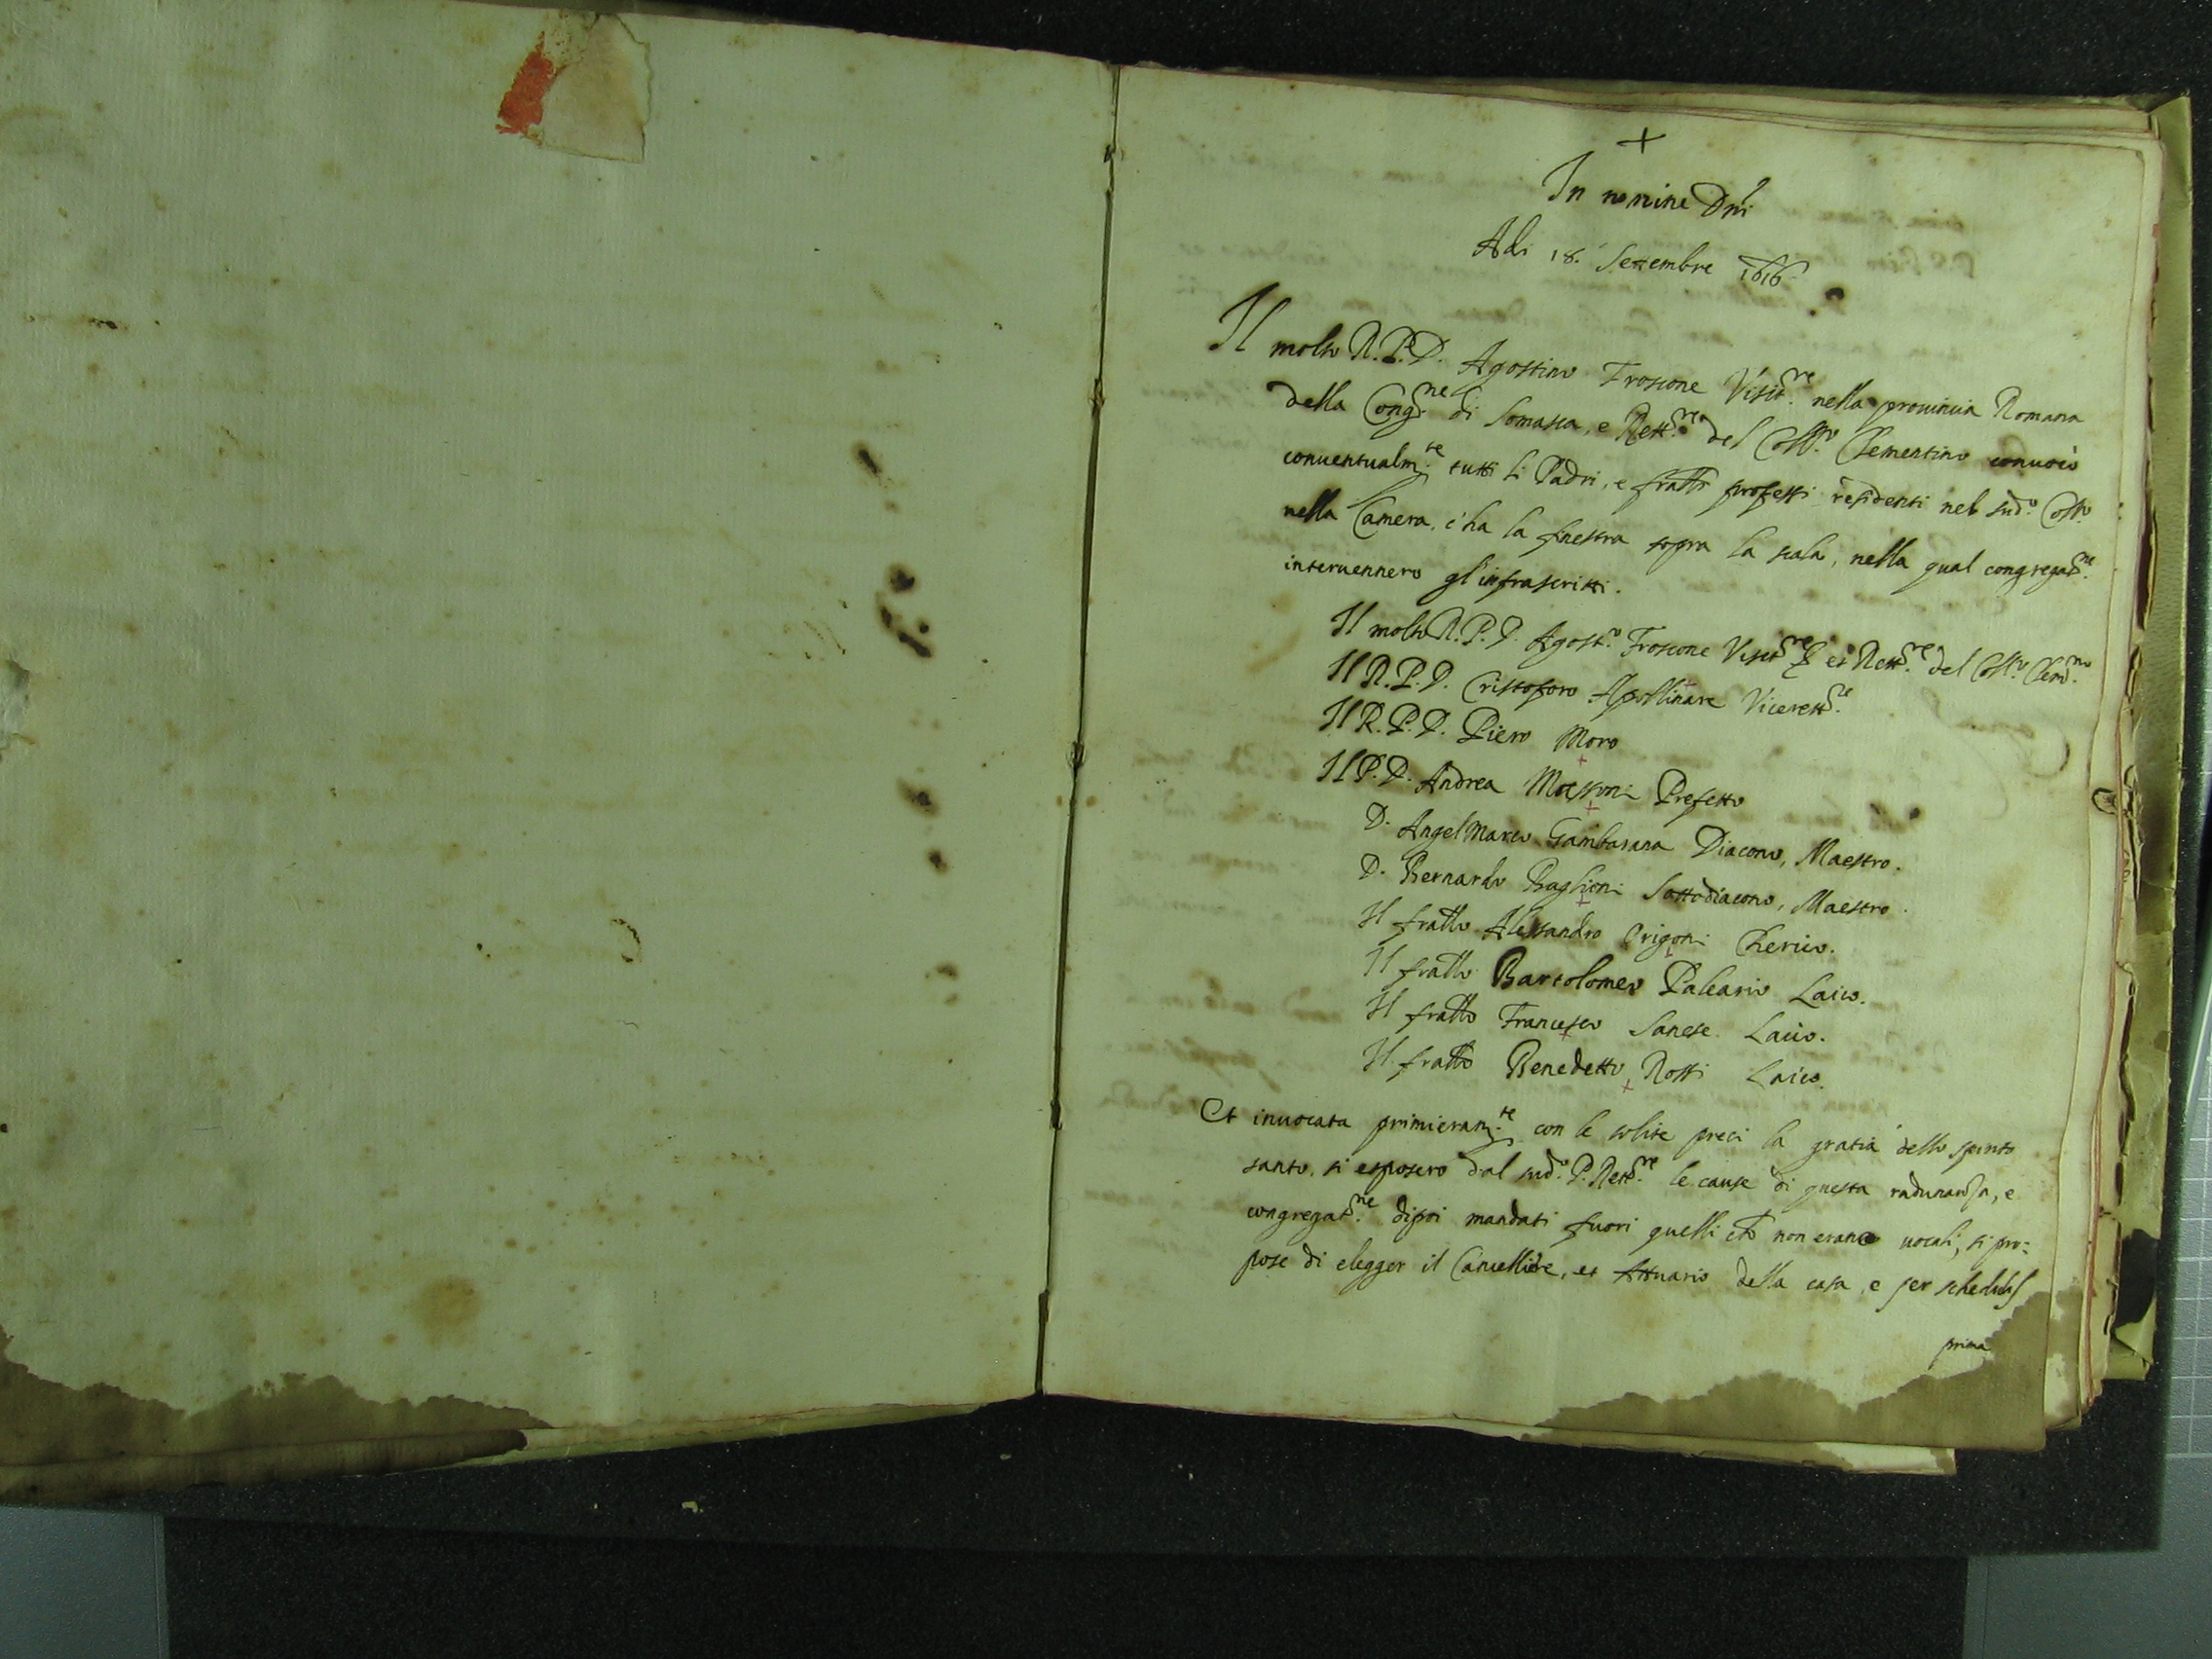 +
In nomine Dni
Adi 18. Settembre 1616.
Il molto R.P.D. Agostino Froscone Visit.re nella prouincia Romana
della Cong.ne di Somasca, e Rett.re del Coll.o Clementino conuocò
conuentualm.te tutti li Padri, e fratti professi residenti nel sud.o Coll.o
nella Camera, c'ha la finestra sopra la scala, nella qual congregat.ne
interuennero gl'infrascritti.
Il molto R.P.D. Agost.o Froscone Visit.re et Rett.re del Coll.o Clem.no
Il R.P.D. Cristoforo Apollinare Vicerett.re
Il R.P.D. Piero Moro
Il P.D. Andrea Massoni Prefetto
D. Angelmarco Gambarana Diacono, Maestro.
D. Bernardo Baglioni Sottodiacono, Maestro.
Il fratto Alessandro Origoni Cherico.
Il fratto Bartolomeo Paleario Laico.
Il fratto Francesco Sanese Laico.
Il fratto Benedetto Rossi Laico.
Et inuocata primieram.te con le solite preci la gratia dello spirito
santo, si esposero dal sud.o P. Rett.re le cause di questa radunanza, e
congregat.ne dipoi mandati fuori quelli che non erano uocali, si pro=
pose di elegger il Cancelliere, et Attuario della casa, e per schedulas
prima